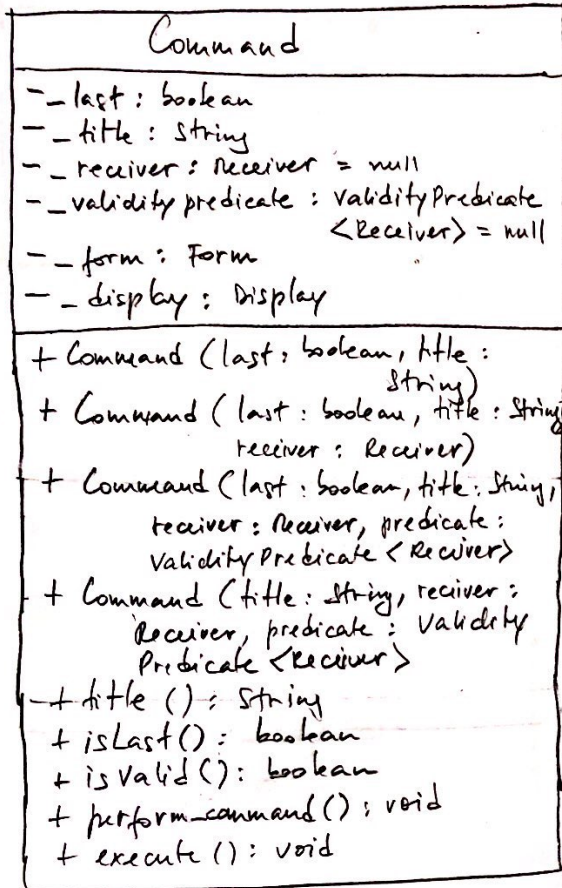 Command
- _last : boolean
- _title : String
- _receiver : Receiver = null
- _validity predicate : validityPredicate
<Receiver> = null
- _form : Form
- _display : Display
+ Command (last : boolean, title :
String)
+ Command ( last : boolean, title : String
receiver : Receiver)
+ Command (last : boolean, title : String,
receiver : Receiver, predicate :
ValidityPredicate <Receiver>
+ Command (title : String, receiver :
Receiver, predicate : Validity
Predicate <Receiver>
+ title () : String
+ isLast() : boolean
+ isValid() : boolean
+ perform_command() : void
+ execute () : void